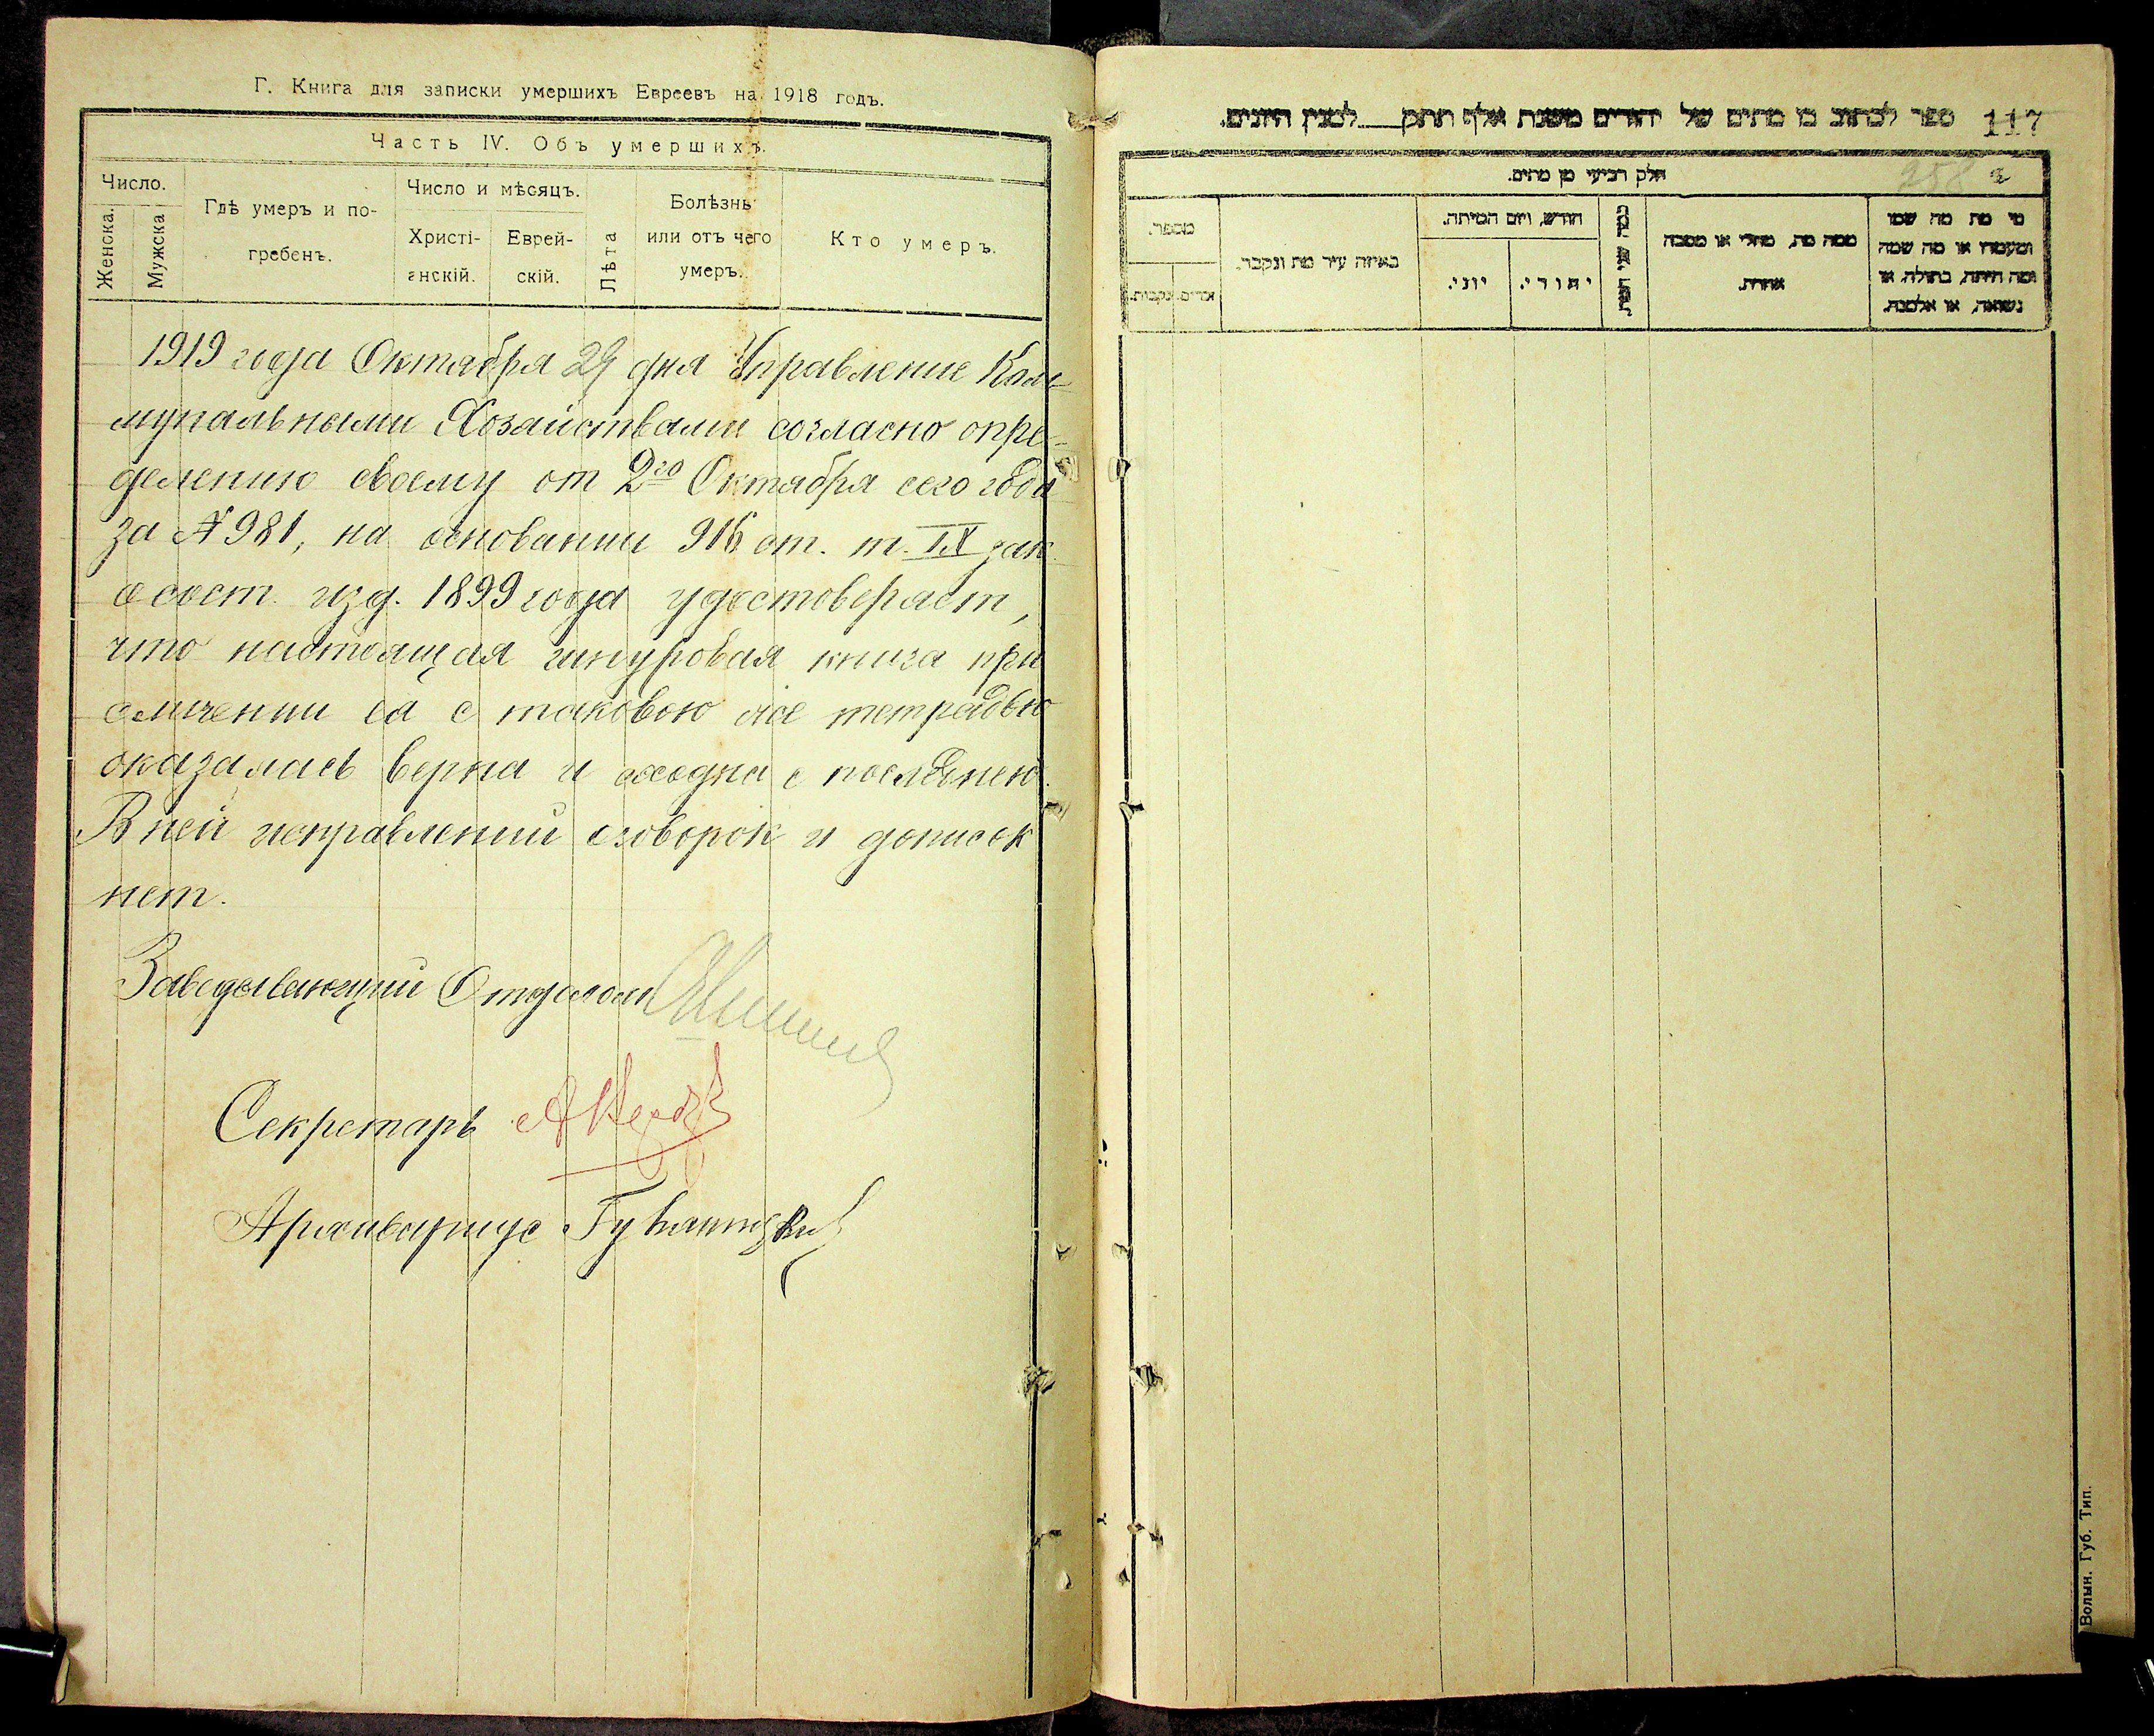 Г. Книга для записки умершихъ Евреевъ на 1918 годъ.
Часть IV. Объ умершихъ.
Число.
Женска.
Мужска
Гдѣ умеръ и по-
гребенъ.
Число и мѣсяцъ.
Христі-
анскій.
Еврей-
скій.
Лѣта
Болѣзнь
или отъ чего
умеръ.
Кто умеръ.
1919 года Октября 29 дня Управление Ком-
мунальными Хозайствами согласно опре-
делению своему от 2го Октября сего года
за № 981, на основании 916 ст. т. IX зак.
о сост. изд. 1899 года удостоверяет,
что настоящая шнуровая книга при
сличении ея с таковою же тетрадью
оказалась верна и сходна с последнею.
В ней исправлений оговорок и дописок
нет.
Заведывающий Отделом
Секретарь
Архивариус
ספר לכתוב בו מתים של יהודים משנת אלף תתק___למנין היונים.
117
חלק רביעי מן מתים.
258
מספר.
זכרים.
נקבות.
באיזה עיר מת ונקבר.
חודש, ויום המיתה.
יוני.
יהודי.
ממה מת, מחלי או מסבה
אחרת.
מי מת מה שמו
ומעמדו או מה שמה
ומה היתה, בתולה, או
נשואה, או אלמנה.
Волын. Губ. Тип.